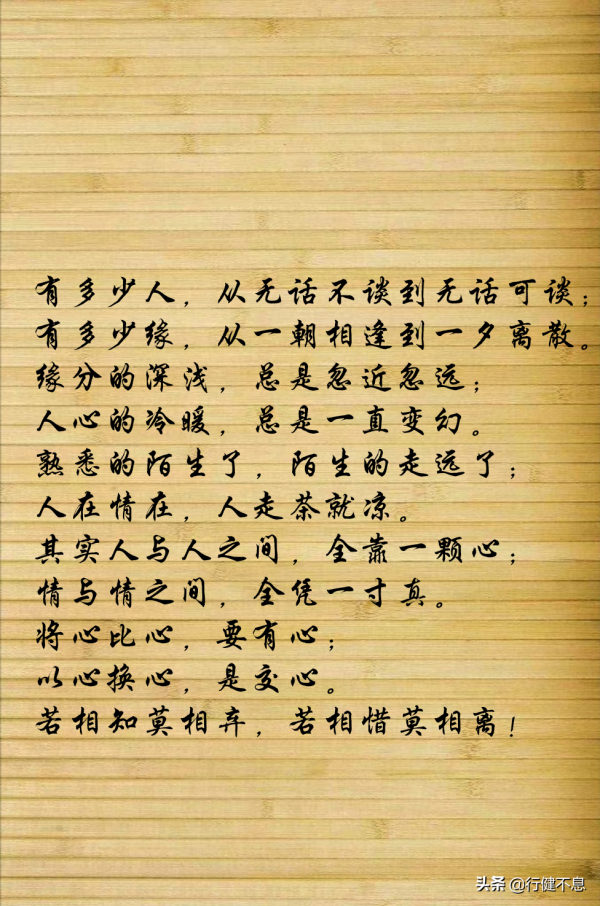 有多少人，从无话不谈到无话可谈；
有多少缘，从一朝相逢到一夕离散。
缘分的深浅，总是忽近忽远；
人心的冷暖，总是一直变幻。
熟悉的陌生了，陌生的走远了；
人在情在，人走茶就凉。
其实人与人之间，全靠一颗心；
情与情之间，全凭一寸真。
将心比心，要有心；
以心换心，是交心。
若相知莫相弃，若相惜莫相离！
头条 @行健不息